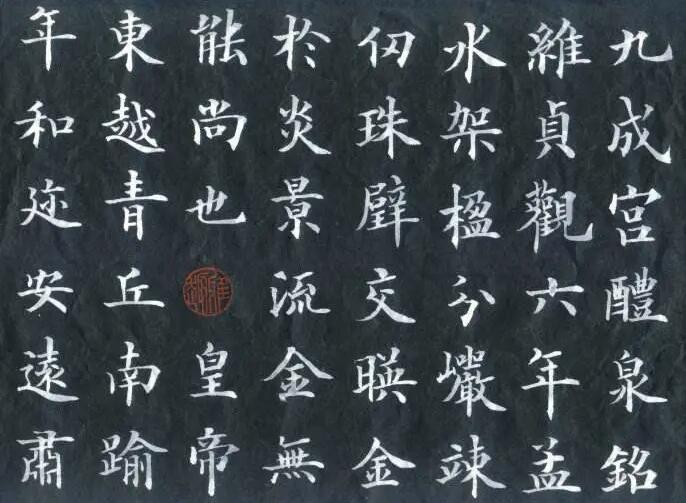 九成宮醴泉銘
維貞觀六年孟
水架楹分巖竦
仞珠壁交暎金
於炎景流金無
能尚也皇帝
東越青丘南踰
年和迩安遠肅